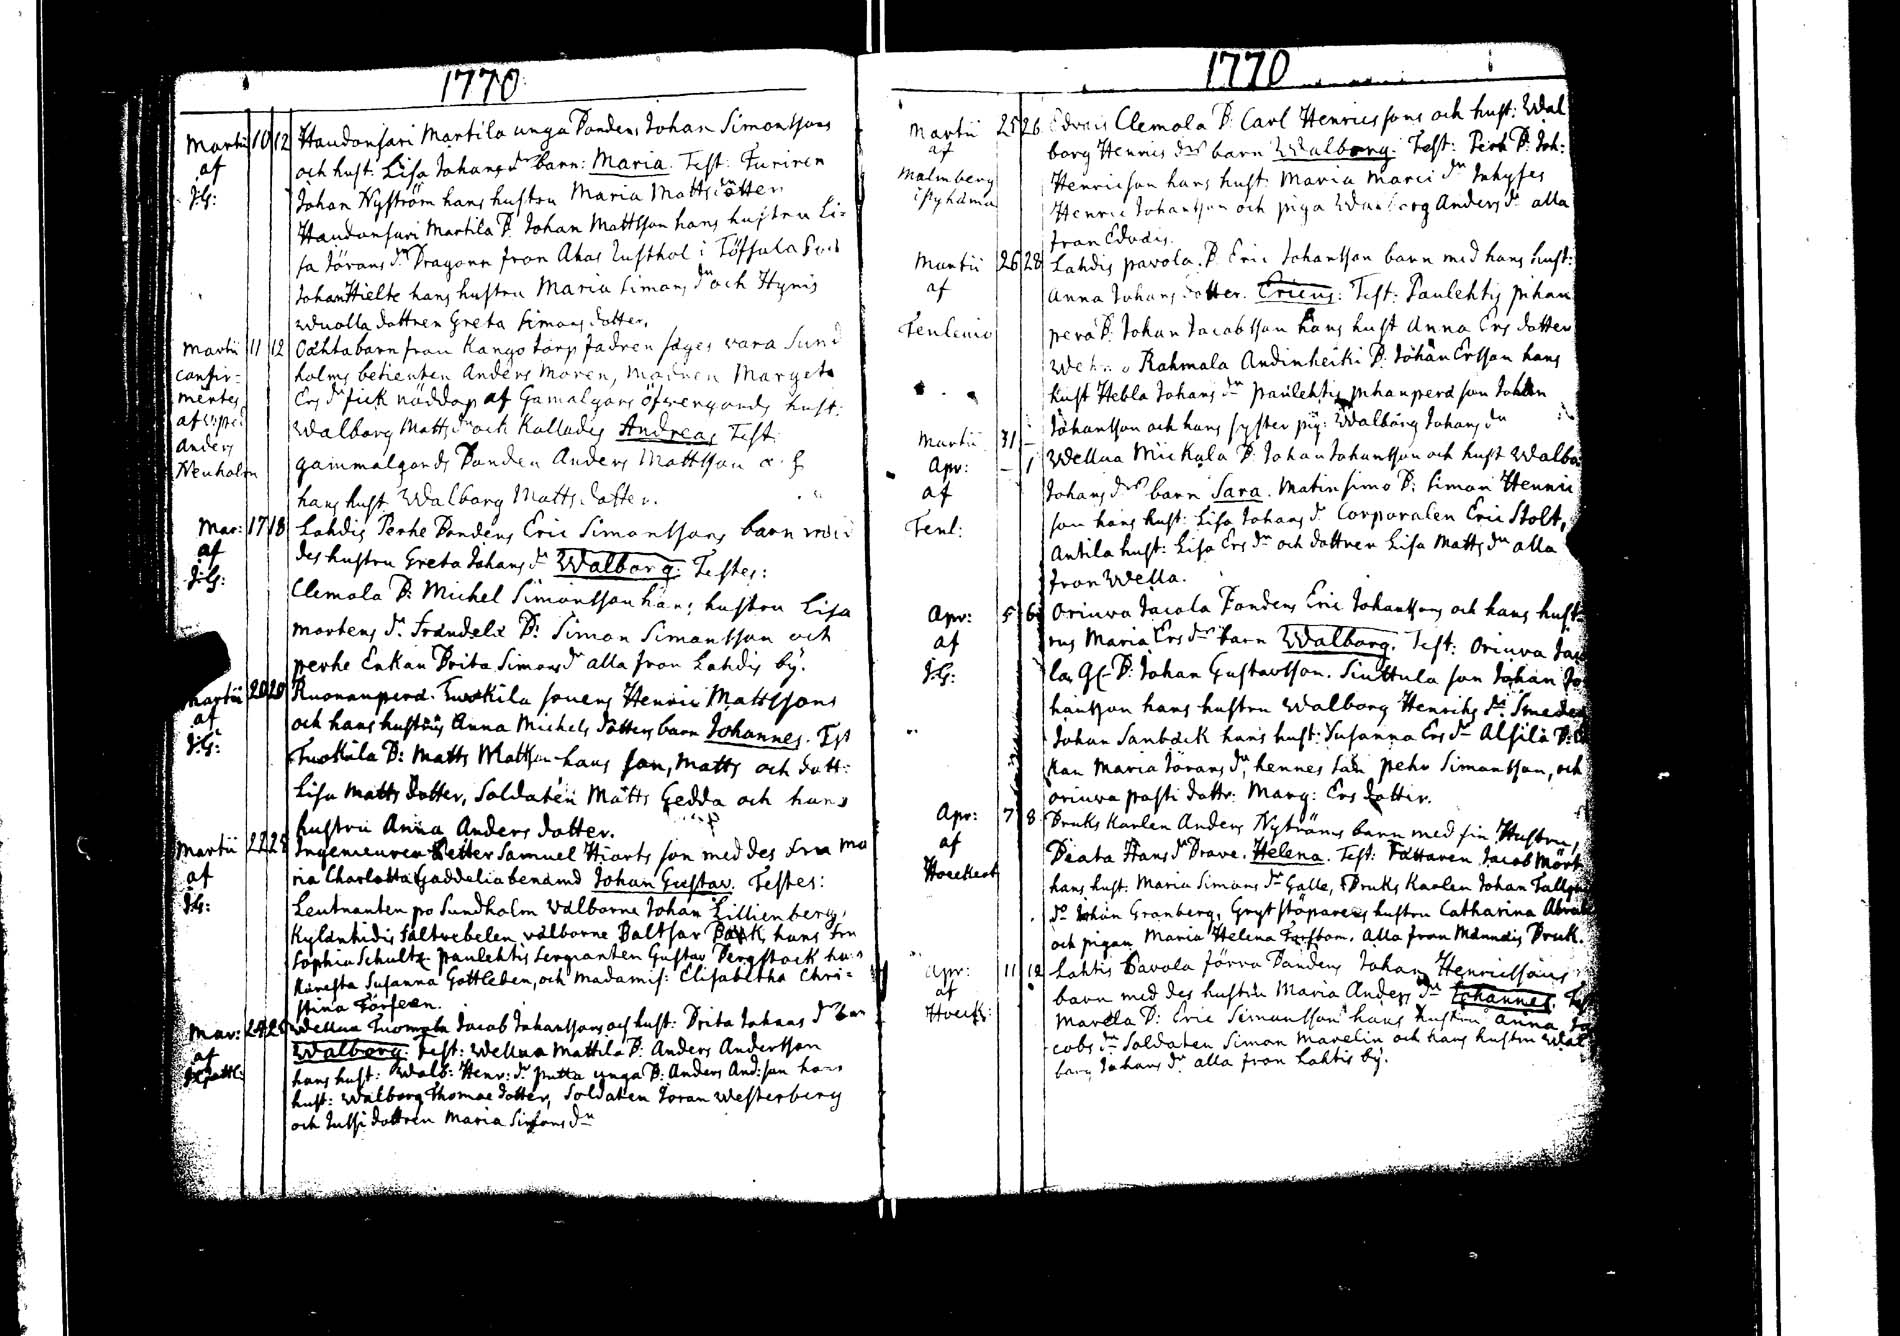 1770
Martii 10 12 Haudonsari Martila unga Bondens Johan Simonssons
af och hust: Lisa Johans dr barn: Maria. Test: Furiren
J:G: Johan Nyström hans hustru Maria Matts dotter
Haudonsari Martila B. Johan Mattsson hans hustru Li=
sa Jörans dr Dragonn from Akas Rusthol i
Johan Hielte hans hustru Maria Simons dr och Hynis
dottren Greta Simons dotter.
Martii 11 12 barn fran Kango torp fadren säges vara Sund
confir= holms betienten Anders Moren, modren Margeta
mertes Ers dr fick nöddop af Gamalgårs hust:
af Walborg Matts dr och Kallades Andreas Test:
Anders gammalgards Bonden Anders Mattsson
Neuholm hans hust Walborg Matts dotter.
Mar: 17 18 Lahdis Perhe Bondens Eric Simonssons barn med
af des hustru Greta Johans dr Walborg. Testes:
J:G: Clemola B: Michel Simonsson hans hustru Lisa
Mortens dr. Frandela B: Simon Simonsson och
perhe Enkan Brita Simons dr alla fron Lahdis by.
Martii 20 20 Ruonanperä Tuokila sonens Henric Mattssons
af och hans hustrus Anna Michels dotters barn Johannes. Tst
J:G: Tuokila B: Matts Mattson hans son, Matts och dott:
Lisa Matts dotter, Soldaten Matts Gedda och hans
hustru Anna Anders dotter.
Martii 22 28 Ingenieuren Petter Samuel Hiorts son med des fru Ma
af ria Charlotta Gaddelia benämd Johan Gustav. Testes:
J:G: Leutnanten po Sundholm välborne Johan Lillienberg,
Kylänhidis fältvebelen välborne Baltsar hans fru
Sophia Schultz. Paulehtis Sergeanten Gustav Bergstock hans
Käresta Susanna Gottleben, och Madamis: Elisabetha Chri=
stina
Mar: 24 25 Wellua Tuomola Jacob Johanssons och hust: Brita Johans dr barn
af Walborg. Test: Wellua Mattila B: Anders Andersson
hans hust: Walb: Henr: dr putta unga B: Anders And:son hans
hust: Walborg Thomæ dotter, Soldaten Joran Westerberg
och Jussi dottren Maria Simons dr
1770
Martii 25 26 Edväis Clemola B: Carl Henricssons och hust: Wal
af borg Henrics drs barn Walborg. Test: Perh B: Joh:
Malmberg Henricson hans hust: Maria Marci dr Inhyses
i Pyhäma Henric Johansson och piga Walborg Anders dr alla
fran Edväis.
Martii 26 28 Lahdis pavola B: Eric Johansson barn med hans hust:
af Anna Johans dotter. Ericus: Test: Paulehtis pihan
Tenlenio perä B: Johan Jacobsson hans hust Anna Ers dotter
Rahmala Andinheiki B: Johan Ersson hans
hust Hebla Johans dr paulehtis pihanperä son Johan
Johansson och hans syster pig: Walborg Johans dr
Martii 31 — Wellua Mickola B: Johan Johansson och hust Walbor
Apr: — 1 Johans drs barn Sara. Matinsimo B: Simon Henric
af son hans hust: Lisa Johans dr Corporalen Eric Stolt,
Tenl: Antila hust: Lisa Ers dr och dottren Lisa Matts dr alla
fron Wella.
Apr: 5 6 Oriuva Jacola Bondens Eric Johanssons och hans hust
af rus Maria Ers drs barn Walborg. Test: Oriuva Jaco
J:G: la B: Johan Gustavsson. Siuttula son Johan Jo
hansson hans hustru Walborg Henrihs dr Smeden
Johan Sanbäck hans hust: Susanna Ers dr Alsila
kan Maria Jörans dr, hennes son pehr Simonsson, och
oriuva pasti dottr: Marg: Ers dotter.
Apr: 7 8 Bruks Karlen Anders Nyströms barn med sin Hustru,
af Beata Hans dr Brave. Helena. Test: Jacob Mört
Hoeckert hans hust: Maria Simons dr Galle, Bruks Karlen Johan
do Johan Granberg, Grytstöparens hustru Catharina Abrah
och pigan Maria Helena Forsbom. Alla fron Männäis Bruk.
Apr: 11 12 Lahtis Pavola förra Bondens Johan Henricssons
af barn med des hustru Maria Anders dr Johannes. Test
Hoeck: Marcela B: Eric Simonsson hans hustru Anna Ja
cobs dr Soldaten Simon Marelin och hans hustru Wal
borg Johans dr alla fron Lahtis by.